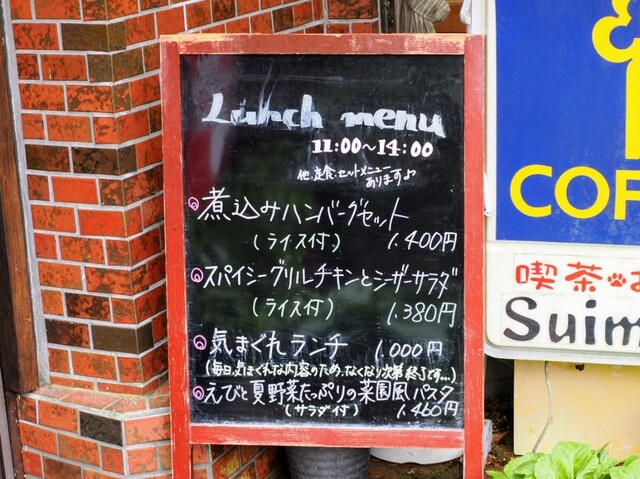 Lunch menu
11:00~14:00
他、定食、セットメニュー
あります♪
煮込みハンバーグセット
(ライス付) 1.400円
スパイシーグリルチキンとシーザーサラダ
(ライス付) 1.380円
気まぐれランチ 1.000円
(毎日、気まぐれな内容のため、なくなり次第終了です...)
えびと夏野菜たっぷりの菜園風パスタ
(サラダ付) 1.460円
COF
喫茶
Suim